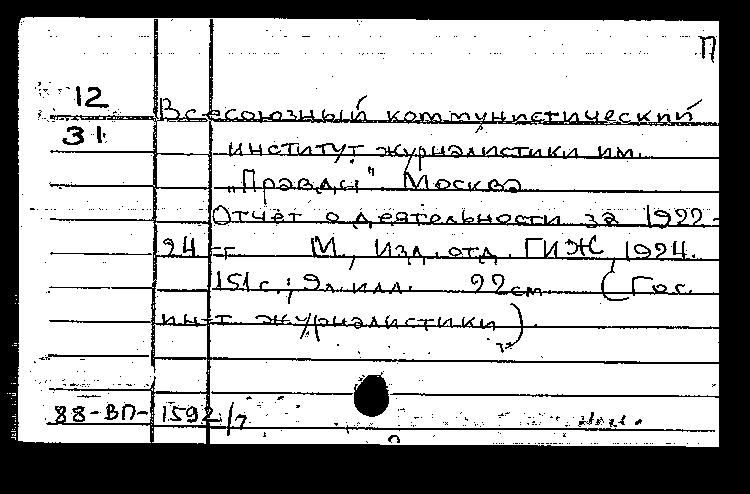 П
12
31
Всесоюзный коммунистический
институт журналистики им.
„Правды" Москва
Отчет о деятельности за 1922-
24 гг М., Изд. отд. ГИЖ, 1924.
151 с.; 9 л. илл. 22 см. (Гос.
ин-т журналистики).
88-ВП-1592/7